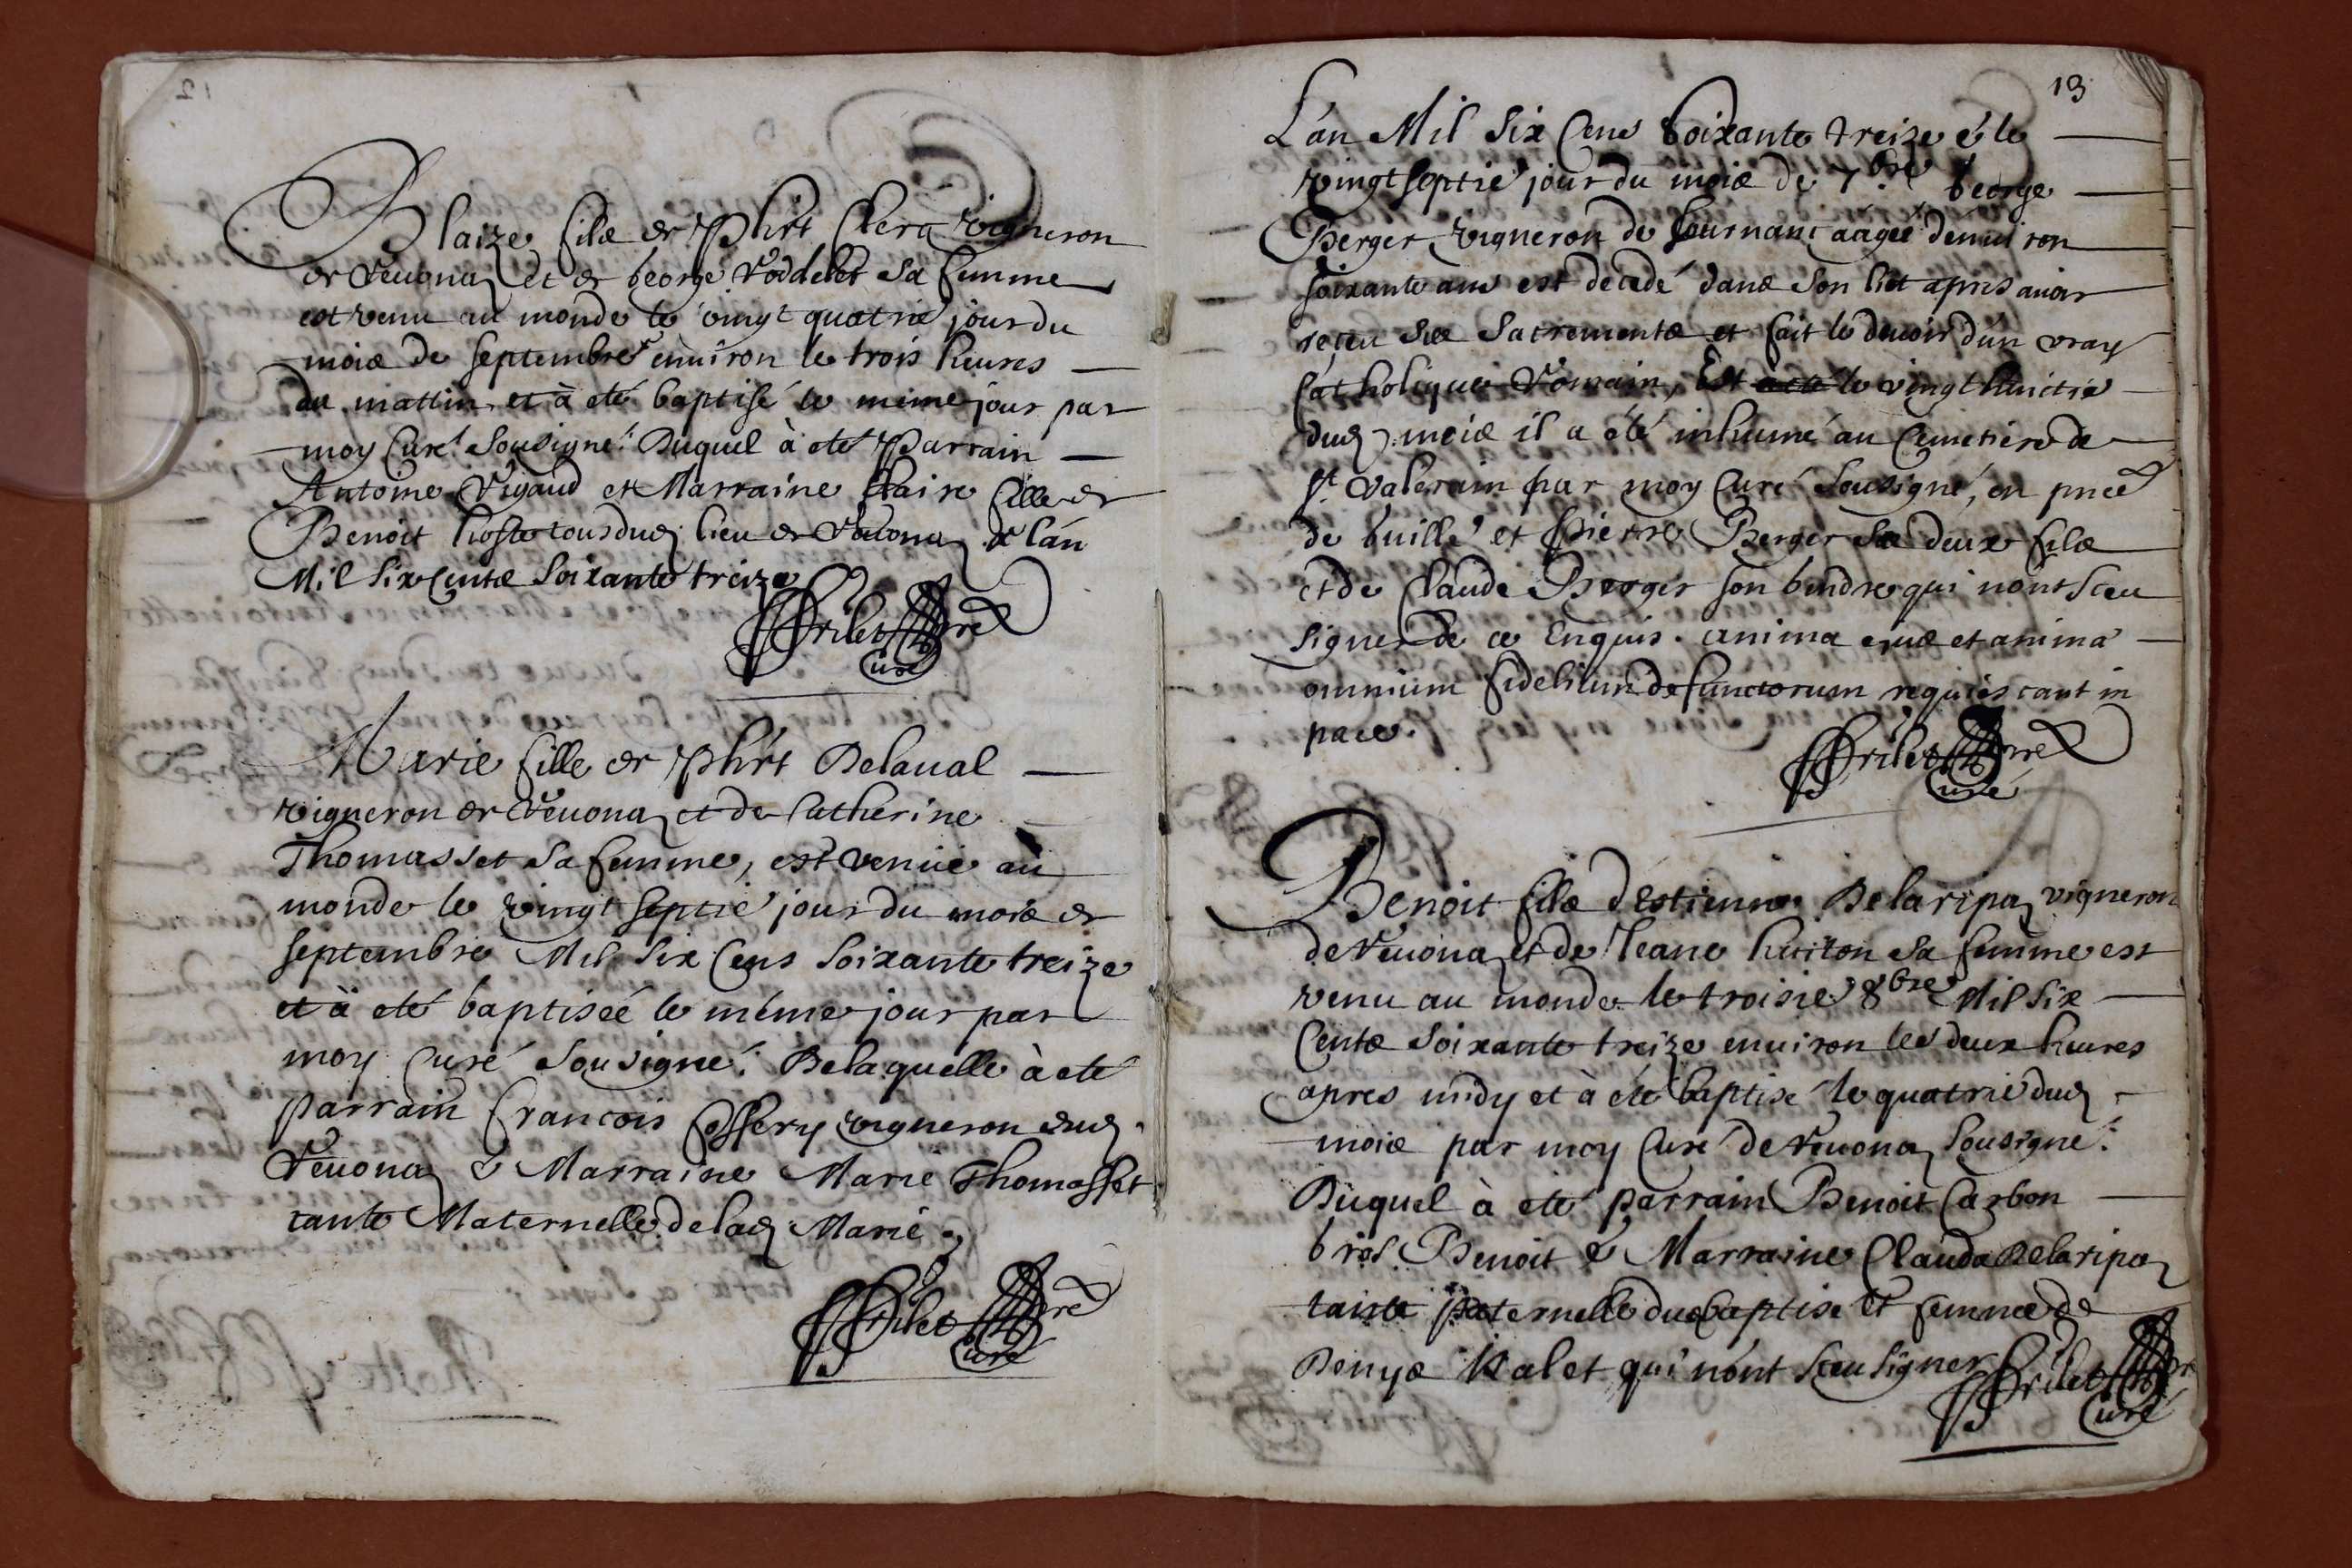 Blaize fils de Phirt Clerc vigneron
de Veuona et de George Voddelet Sa femme
est venu au monde le vingt quatrie jour du
mois de Septembre enuiron le trois heures
du mattin et à eté baptisé le même jour par
moy Curé Sousigné. Duquel à eté Parrain
Antoine Vigaud et Marraine Claire fille de
Benoit hoste tous dud lieu de Veuona & l'án
Mil Six Cents Soixante treize
Curé
Marie fille de Phirt Delaual
vigneron de Veuona et de Catherine
Thomasset Sa femme, est venüe au
monde le vingt Septié jour du mois de
Septembre Mil Six Cens Soixante treize
et à eté baptiséé le même jour par
moy Curé Sousigné. De laquelle à eté
parrain francois Coffery vigneron dud
Veuona & Marraine Marie Thomasset
tante Maternelle de lad Marie
Curé
13
L'án Mil Six Cens Soixante treize & le
vingt septié jour du mois de 7bre George
Berger vigneron de Cournans aagéé denuiron
soixante ans est decedé dans son lict apres auoir
reçeu Ses Sacrements et fait le deuoir d'un vray
Catholique Romain, Est le vingt huictié
dud mois il a été inhumé au Cemetiere de
St Valerain par moy Curé Sousigné, en pnce
de Guille et Pierre Berger Ses deux fils
et de Claude Berger son Gendre qui nont Sceu
Signer de ce Enquis. anima ejus et anima
omnium fidelium defunctorum requiescant in
pace.
Curé
Benoit fils d'Estienne Delaripa vigneron
de Veuona et de Jeane huiton Sa femme est
venu au monde le troisié 8bre Mil Six
Cents Soixante treize enuiron les deux heures
apres midy et à eté baptisé le quatrié dud
mois par moy Curé de Veuona Sousigné.
Duquel à eté parrain Benoit Carbon
Benoit & Marraine Clauda Delaripa
tante paternelle dud baptisé et femme de
Denys Kalet qui nónt Sceu Signer
Curé